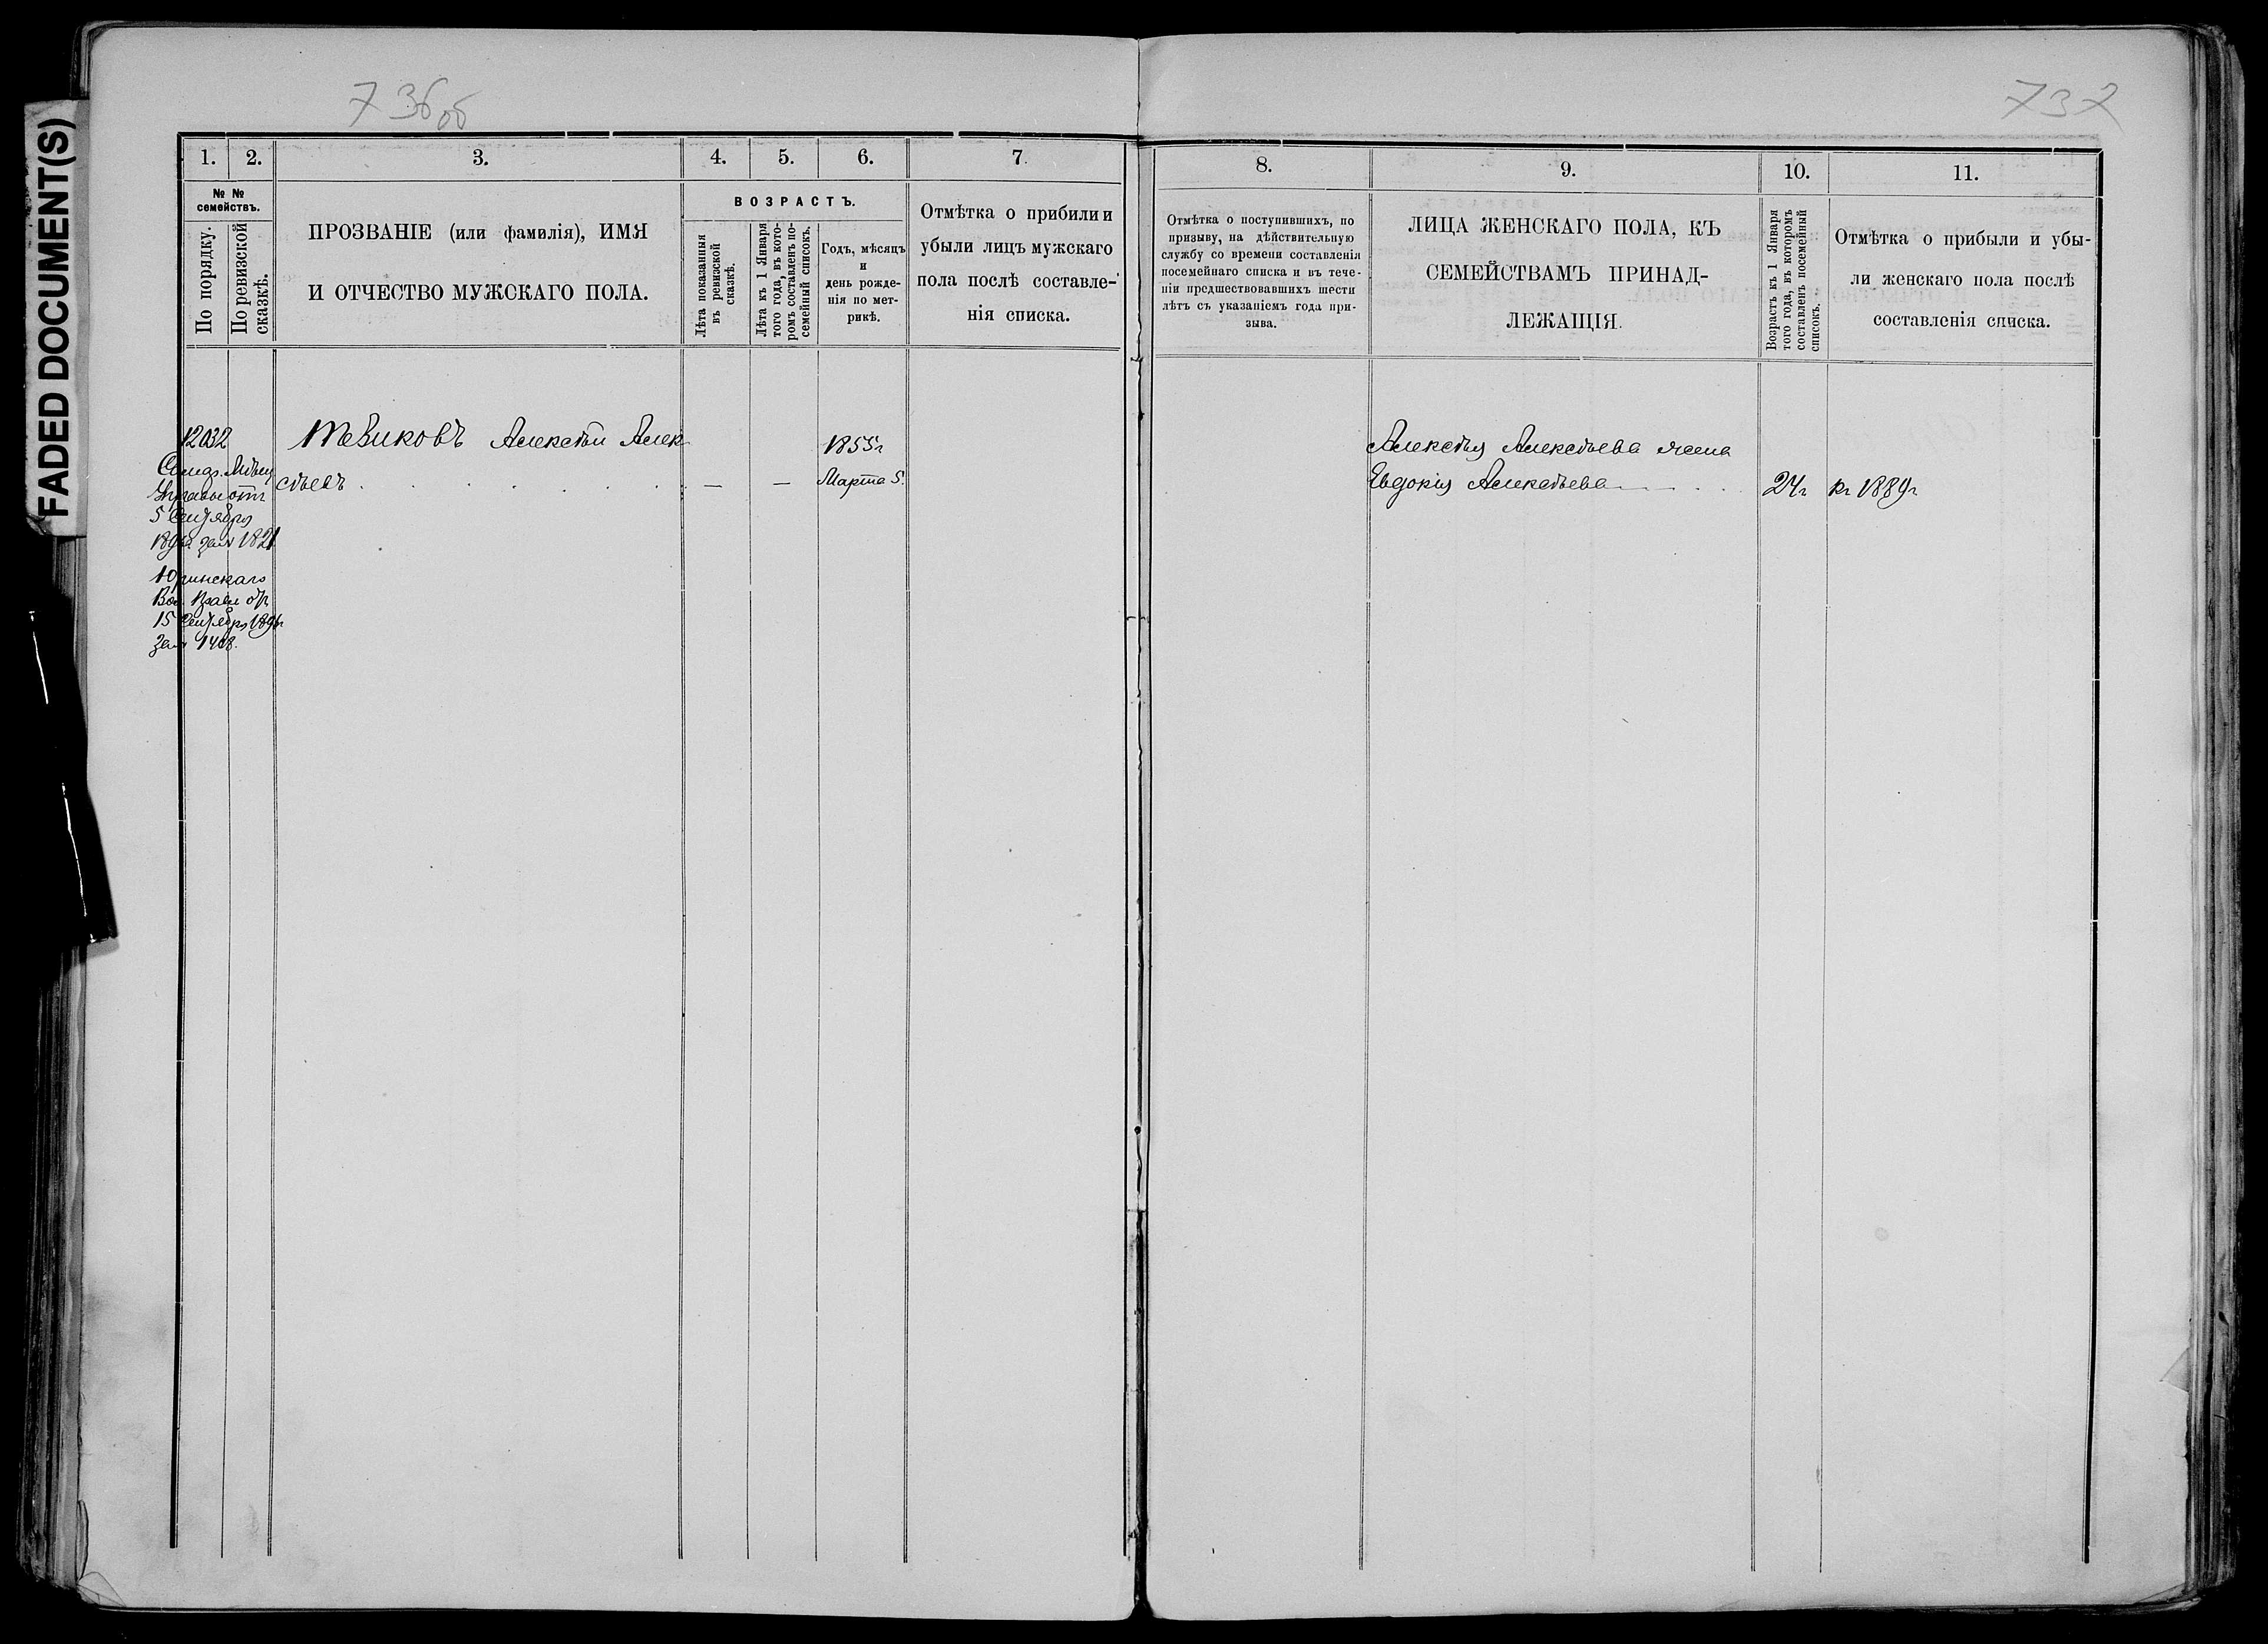 FADED DOCUMENT(S)
736об
737
1. 2. 3. 4. 5. 6. 7.
№ №
семействъ.
По порядку.
По ревизской
сказкѣ.
ПРОЗВАНІЕ (или фамилія), ИМЯ
И ОТЧЕСТВО МУЖСКАГО ПОЛА.
ВОЗРАСТЪ.
Лѣта показанныя
въ ревизской
сказкѣ.
Лѣта къ 1 Января
того года, въ кото-
ромъ составленъ по-
семейный списокъ.
Годъ, мѣсяцъ
и
день рожде-
нія по мет-
рикѣ.
Отмѣтка о прибыли и
убыли лицъ мужскаго
пола послѣ составле-
нія списка.
12032
5 Сентября
Юринскаго
15 Сентября 1896г
1408.
Алексѣй Алек
сѣевъ
— —
1855г
Марта 5.
8. 9. 10. 11.
Отмѣтка о поступившихъ, по
призыву, на дѣйствительную
службу со времени составленія
посемейнаго списка и въ тече-
ніи предшествовавшихъ шести
лѣтъ съ указаніемъ года при-
зыва.
ЛИЦА ЖЕНСКАГО ПОЛА, КЪ
СЕМЕЙСТВАМЪ ПРИНАД-
ЛЕЖАЩІЯ.
Возрастъ къ 1 Января
того года, въ которомъ
составленъ посемейный
списокъ.
Отмѣтка о прибыли и убы-
ли женскаго пола послѣ
составленія списка.
Алексѣя Алексѣева жена
Евдокія Алексѣева
24г
къ 1889г